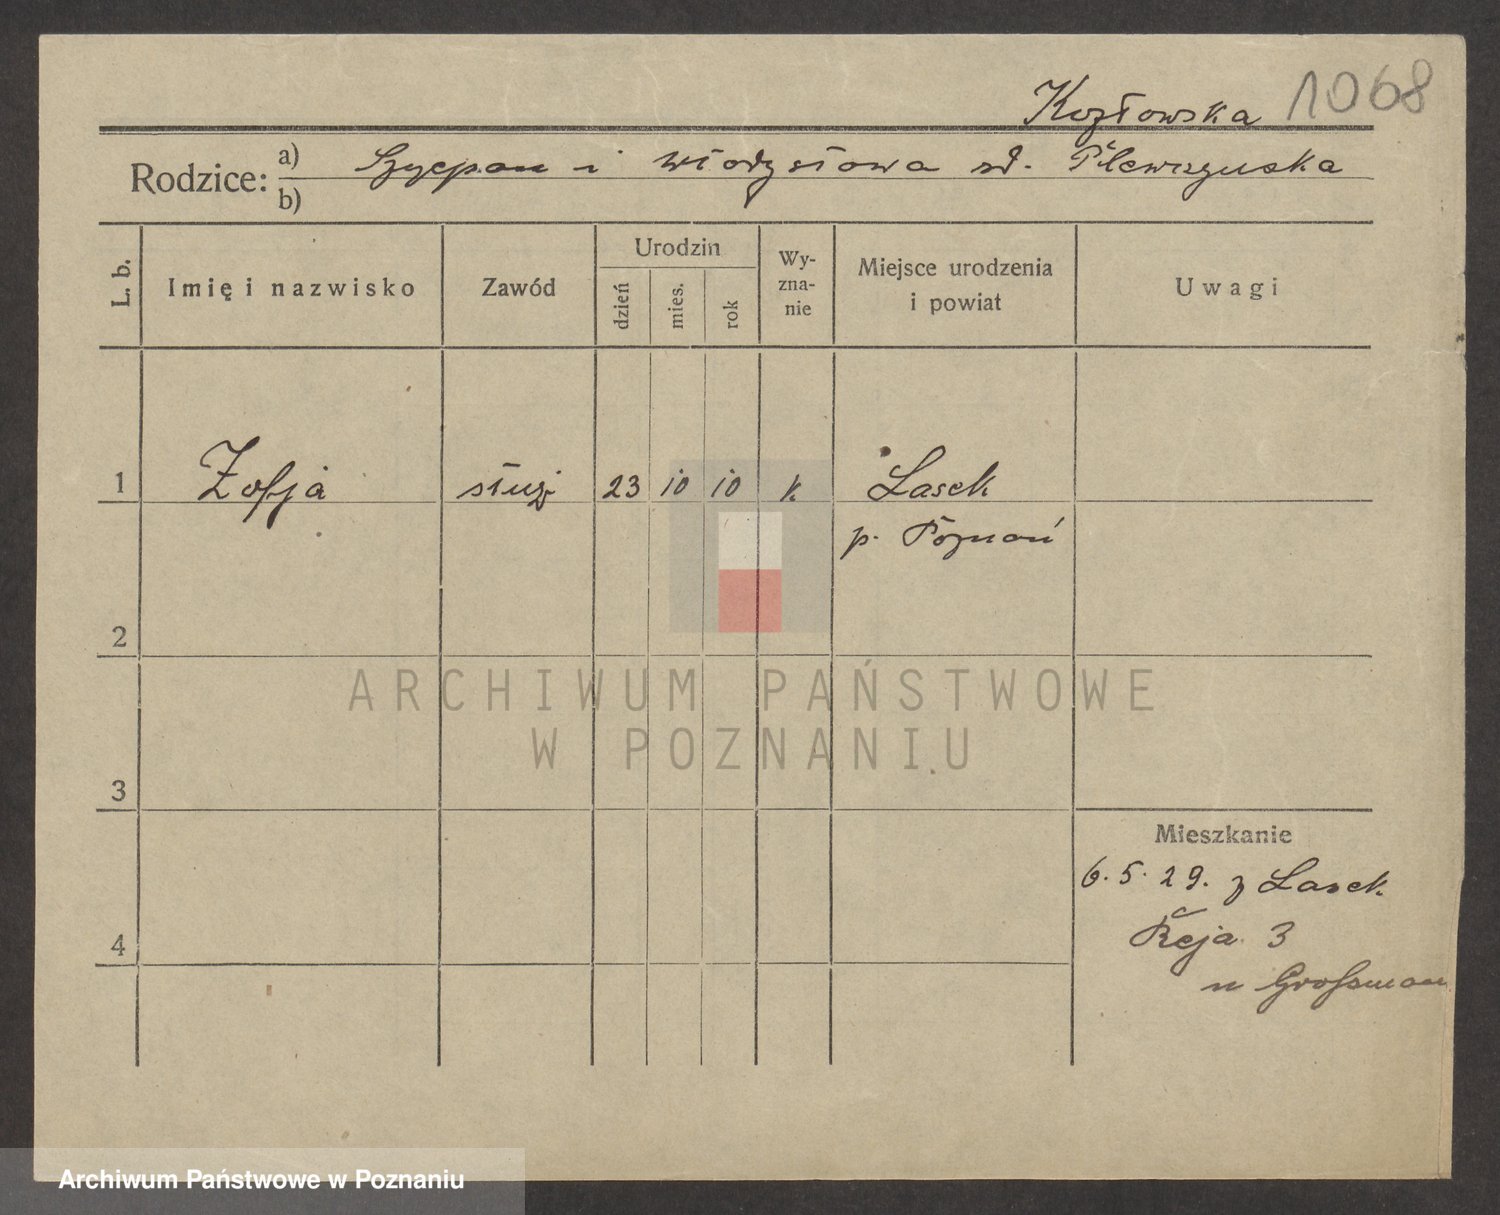 Kozłowska 1068
Rodzice: a) Szczepan i Władysława zd.
b)
L. b.
Imię i nazwisko
Zawód
Urodzin
dzień
mies.
rok
Wy-
zna-
nie
Miejsce urodzenia
i powiat
Uwagi
1 Zofja służ 23 10 10 k. Lasek
p. Poznań
2
ARCHIWUM PAŃSTWOWE
W POZNANIU
3
Mieszkanie
6. 5. 29. z Lasek
Reja 3
4
u Grossman
Archiwum Państwowe w Poznaniu